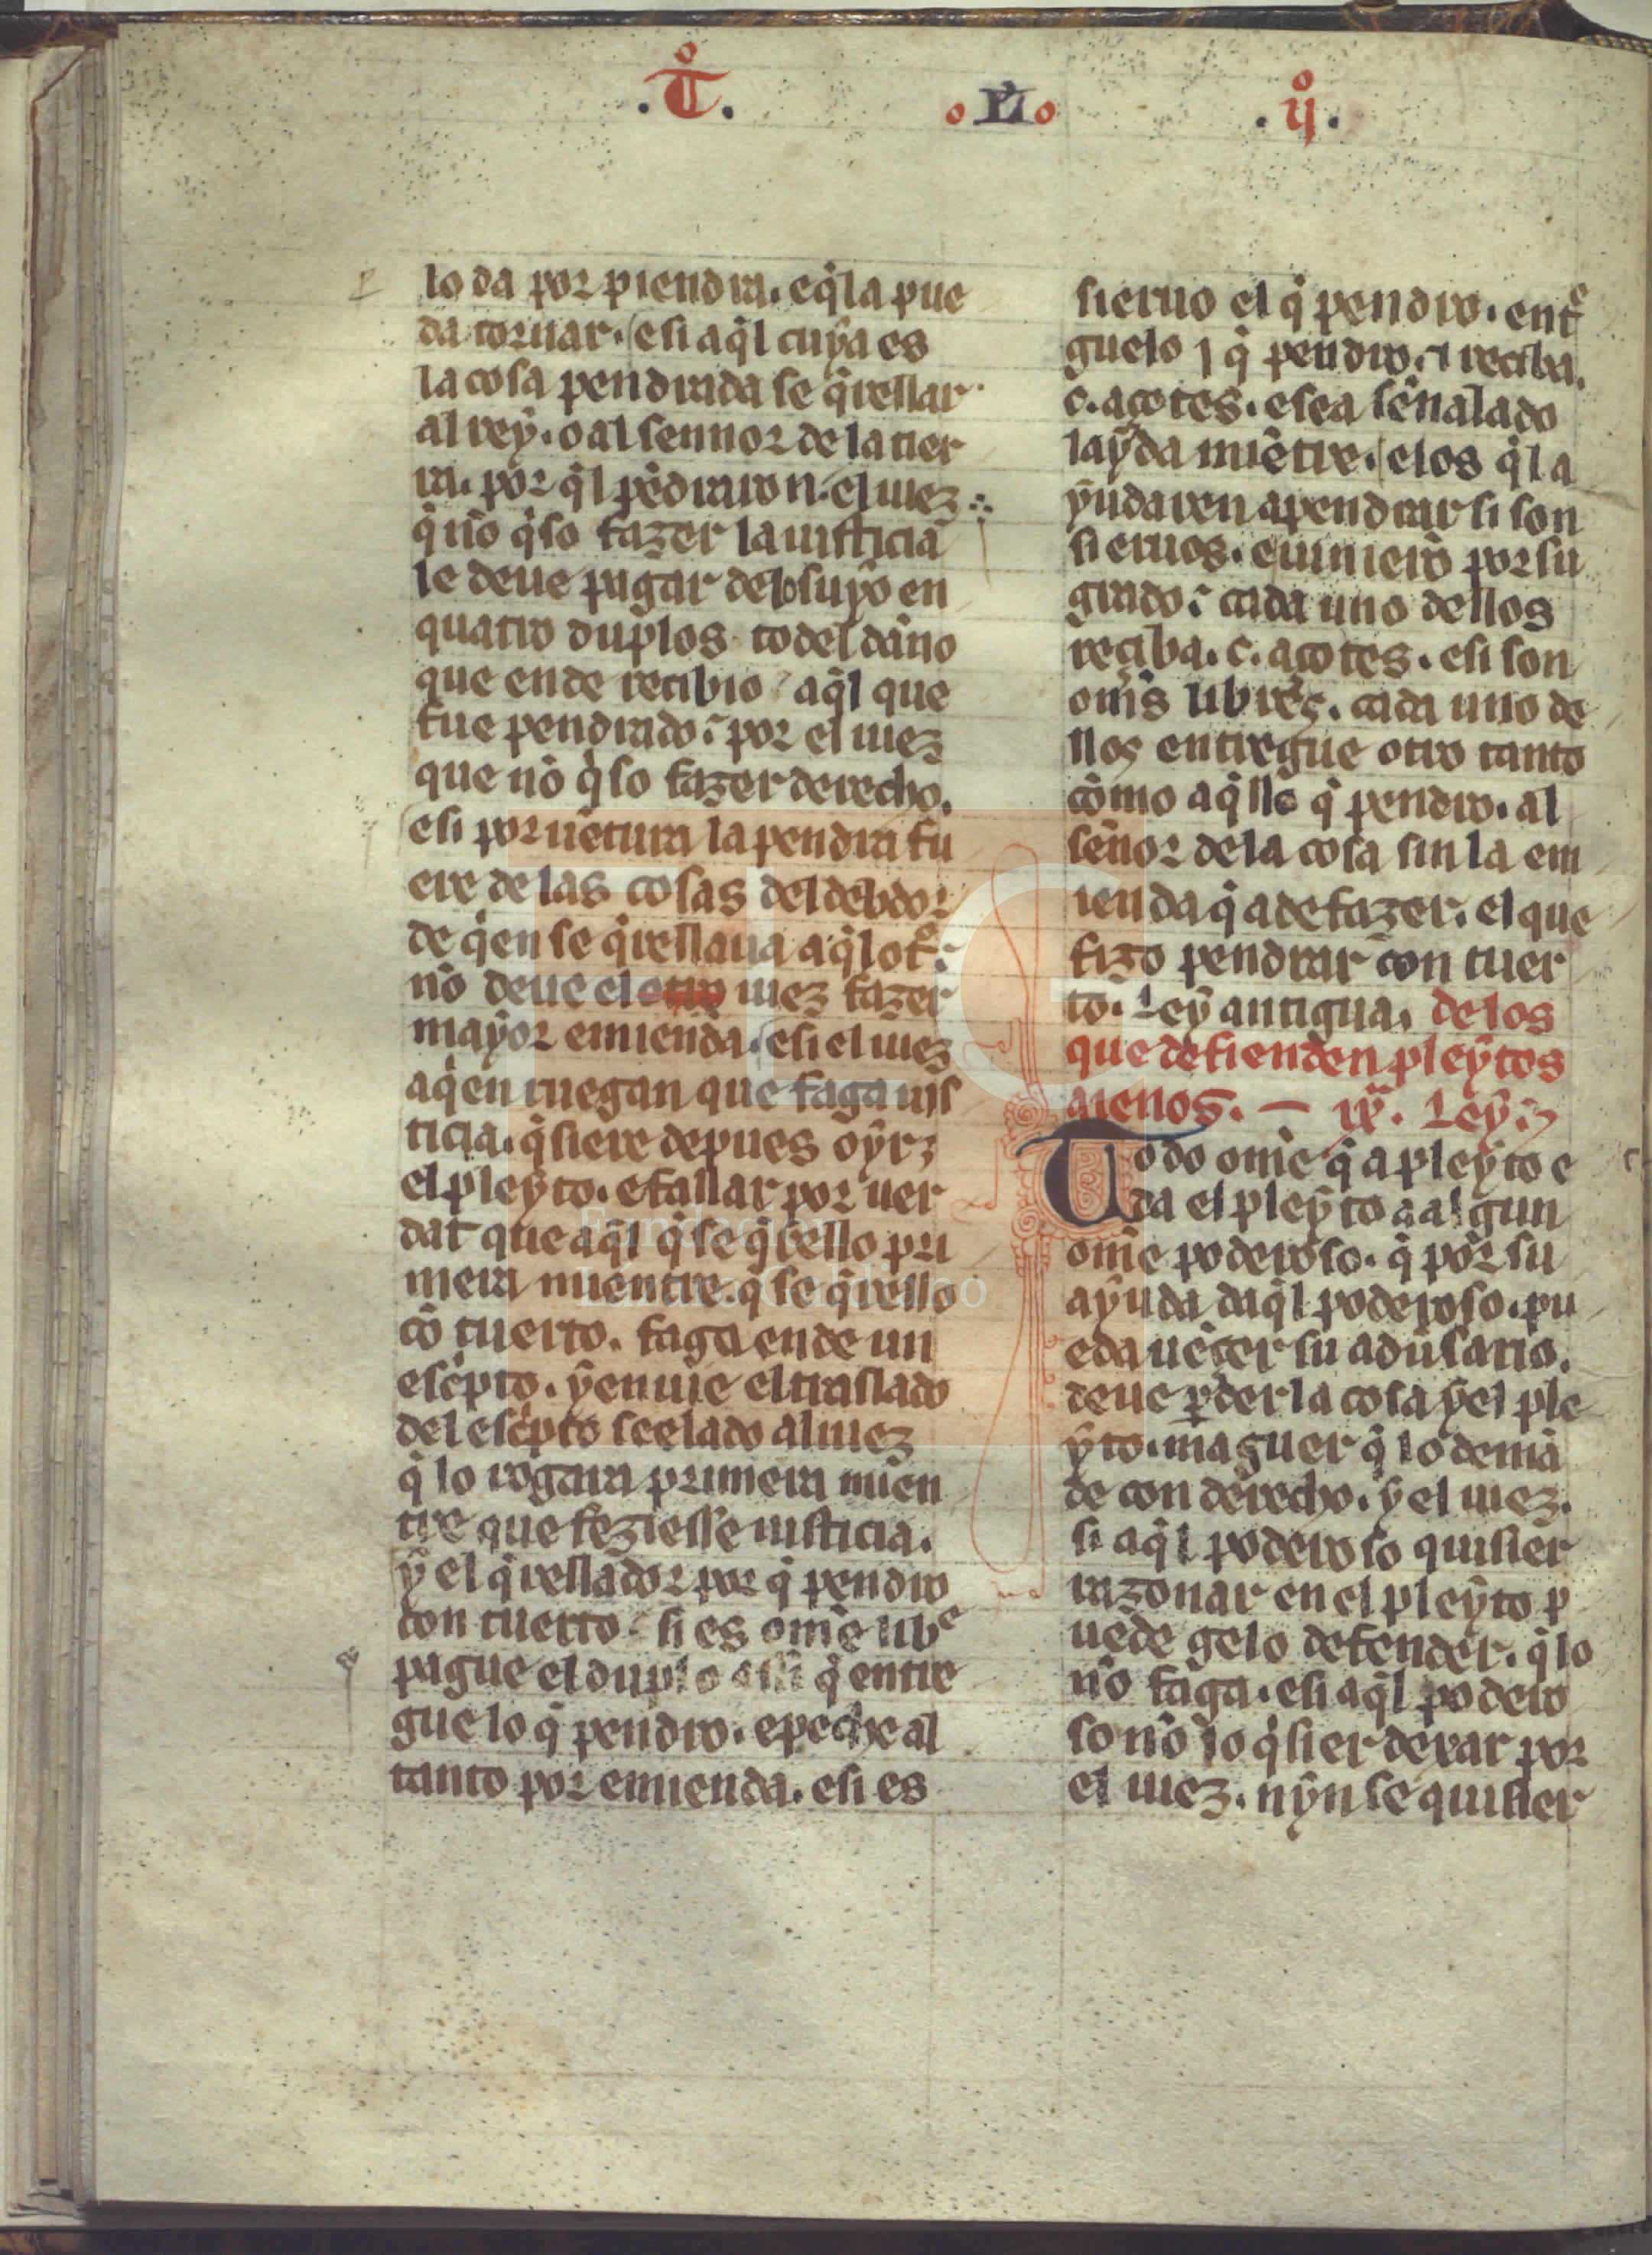 .T̊. .Lı. .ij̊.
lo da por piendra. eq̃la pue
da tornar. esi aq̃l cuẏa es
la cosa pendrada se q̃rellar
al reẏ. o al sennor de la tier
ra. por q̃l pẽdraron. el iuez
q̃ nõ q̃so fazer la iusticia
le deue pagar delo suẏo en
quatro duplos todel dãno
que ende recibio aq̃l que
fue pendrado: por el iuez
que nõ q̃so fazer derecho.
esi por uẽtura la pendra fu
ere de las cosas del debdor
de q̃en se q̃rellaua aq̃l ot͛:
nõ deue el otro iuez fazer
maẏor emienda. esi el iuez
aq̃en ruegan que faga ius
ticia. q̃siere depues oẏr
el pleẏto. efallar por uer
dat que aq̃l q̃ se q̃rello pri
mera mientre. q̃ se q̃rello
cõ tuerto. faga ende un
esc̃pto. ẏ enuie el traslado
del esc̃pto seelado al iuez
q̃ lo rogara primera mien
tre que feziesse iusticia.
ẏ el q̃rellador por q̃ pendro
con tuerto si es om̃e libᵉ
pague el duplo assi q̃ entre
gue lo q̃ pendro. epeche al
tanto por emienda. esi es
sieruo el q̃ pendro. ent͛
guelo q̃ pendro. ⁊ reciba.
c. açotes. esea señalado
laẏda miẽtre. elos q̃l a
ẏudaren apendrar si son
sieruos. euinierõ por su
grado: cada uno dellos
reciba. c. açotes. esi son
om̃s libres. cada uno de
llos entregue otro tanto
cõmo aq̃llo q̃ pendro. al
señor dela cosa sin la em
ienda q̃ a de fazer. el que
fizo pendrar con tuer
to. Leẏ antigua. de los
que defienden pleẏtos
aienos. — ix. Leẏ.
Todo om̃e q̃ a pleẏto e
da el pleẏto a algun
om̃e poderoso. q̃ por su
aẏuda daq̃l poderoso. pu
eda uẽcer su aduersario.
deue ꝑder la cosa ẏ el ple
ẏto. maguer q̃ lo demã
de con derecho. ẏ el iuez.
si aq̃l poderoso quisier
razonar en el pleẏto p
uede gelo defender. q̃ lo
nõ faga. esi aq̃l podero
so nõ lo q̃sier dexar por
el iuez. nẏn se quisier